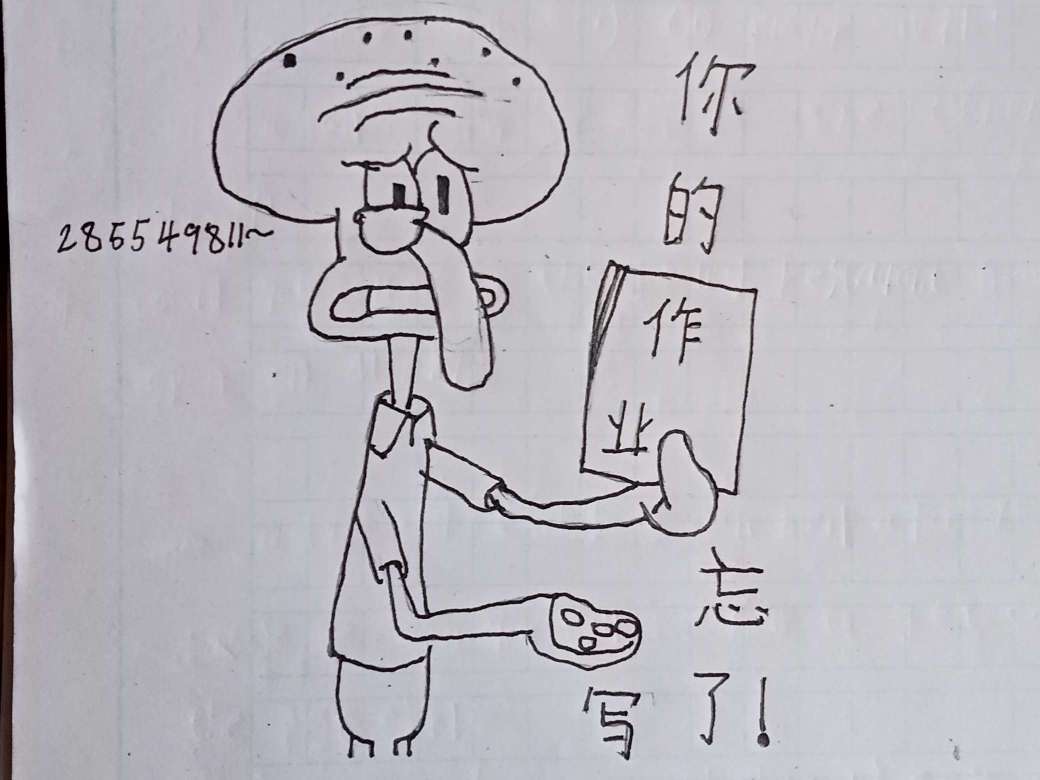 你
的
285549811~
作
业
忘
写了！